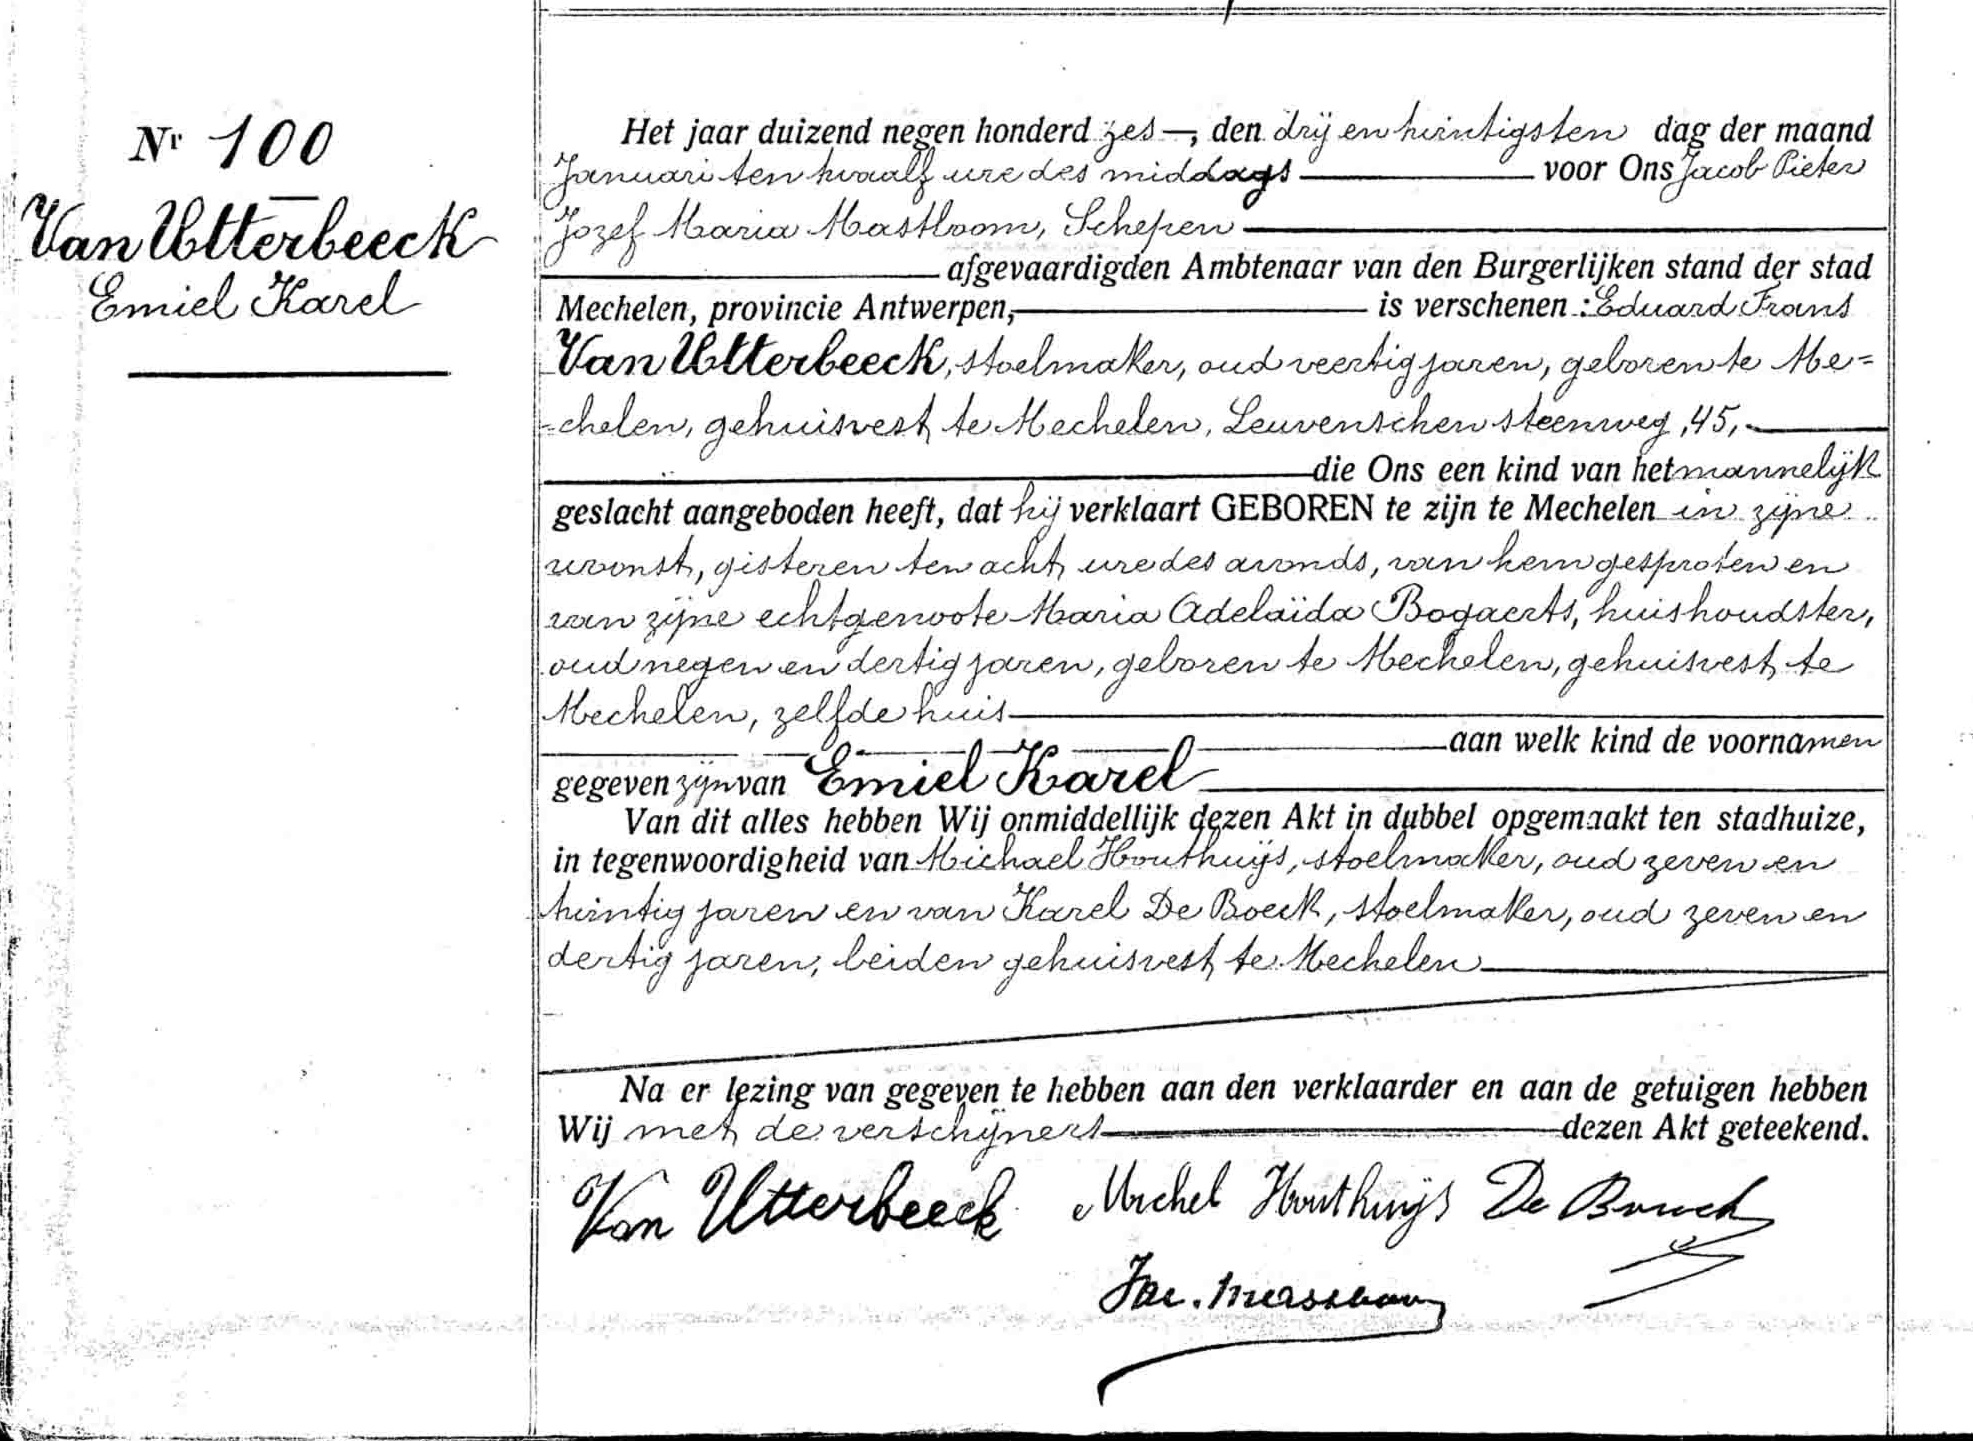 Nr 100
Van Utterbeeck
Emiel Karel
Het jaar duizend negen honderd zes —, den drij en twintigsten dag der maand
Januari ten twaalf ure des middags voor Ons Jacob Pieter
Jozef Maria Mastboom, Schepen
afgevaardigden Ambtenaar van den Burgerlijken stand der stad
Mechelen, provincie Antwerpen, is verschenen : Eduard Frans
Van Utterbeeck, stoelmaker, oud veertig jaren, geboren te Me=
=chelen, gehuisvest te Mechelen, Leuvenschen steenweg, 45,
die Ons een kind van het mannelijk
geslacht aangeboden heeft, dat hij verklaart GEBOREN te zijn te Mechelen in zijne
woonst, gisteren ten acht ure des avonds, van hem gesproten en
van zijne echtgenoote Maria Adelaïda Bogaerts, huishoudster,
oud negen en dertig jaren, geboren te Mechelen, gehuisvest te
Mechelen, zelfde huis
aan welk kind de voornamen
gegeven zijn van Emiel Karel
Van dit alles hebben Wij onmiddellijk dezen Akt in dubbel opgemaakt ten stadhuize,
in tegenwoordigheid van Michael Houthuijs, stoelmaker, oud zeven en
twintig jaren en van Karel De Boeck, stoelmaker, oud zeven en
dertig jaren, beiden gehuisvest te Mechelen
Na er lezing van gegeven te hebben aan den verklaarder en aan de getuigen hebben
Wij met de verschijners dezen Akt geteekend.
Van Utterbeeck Michel Houthuijs De Boeck
Jac.